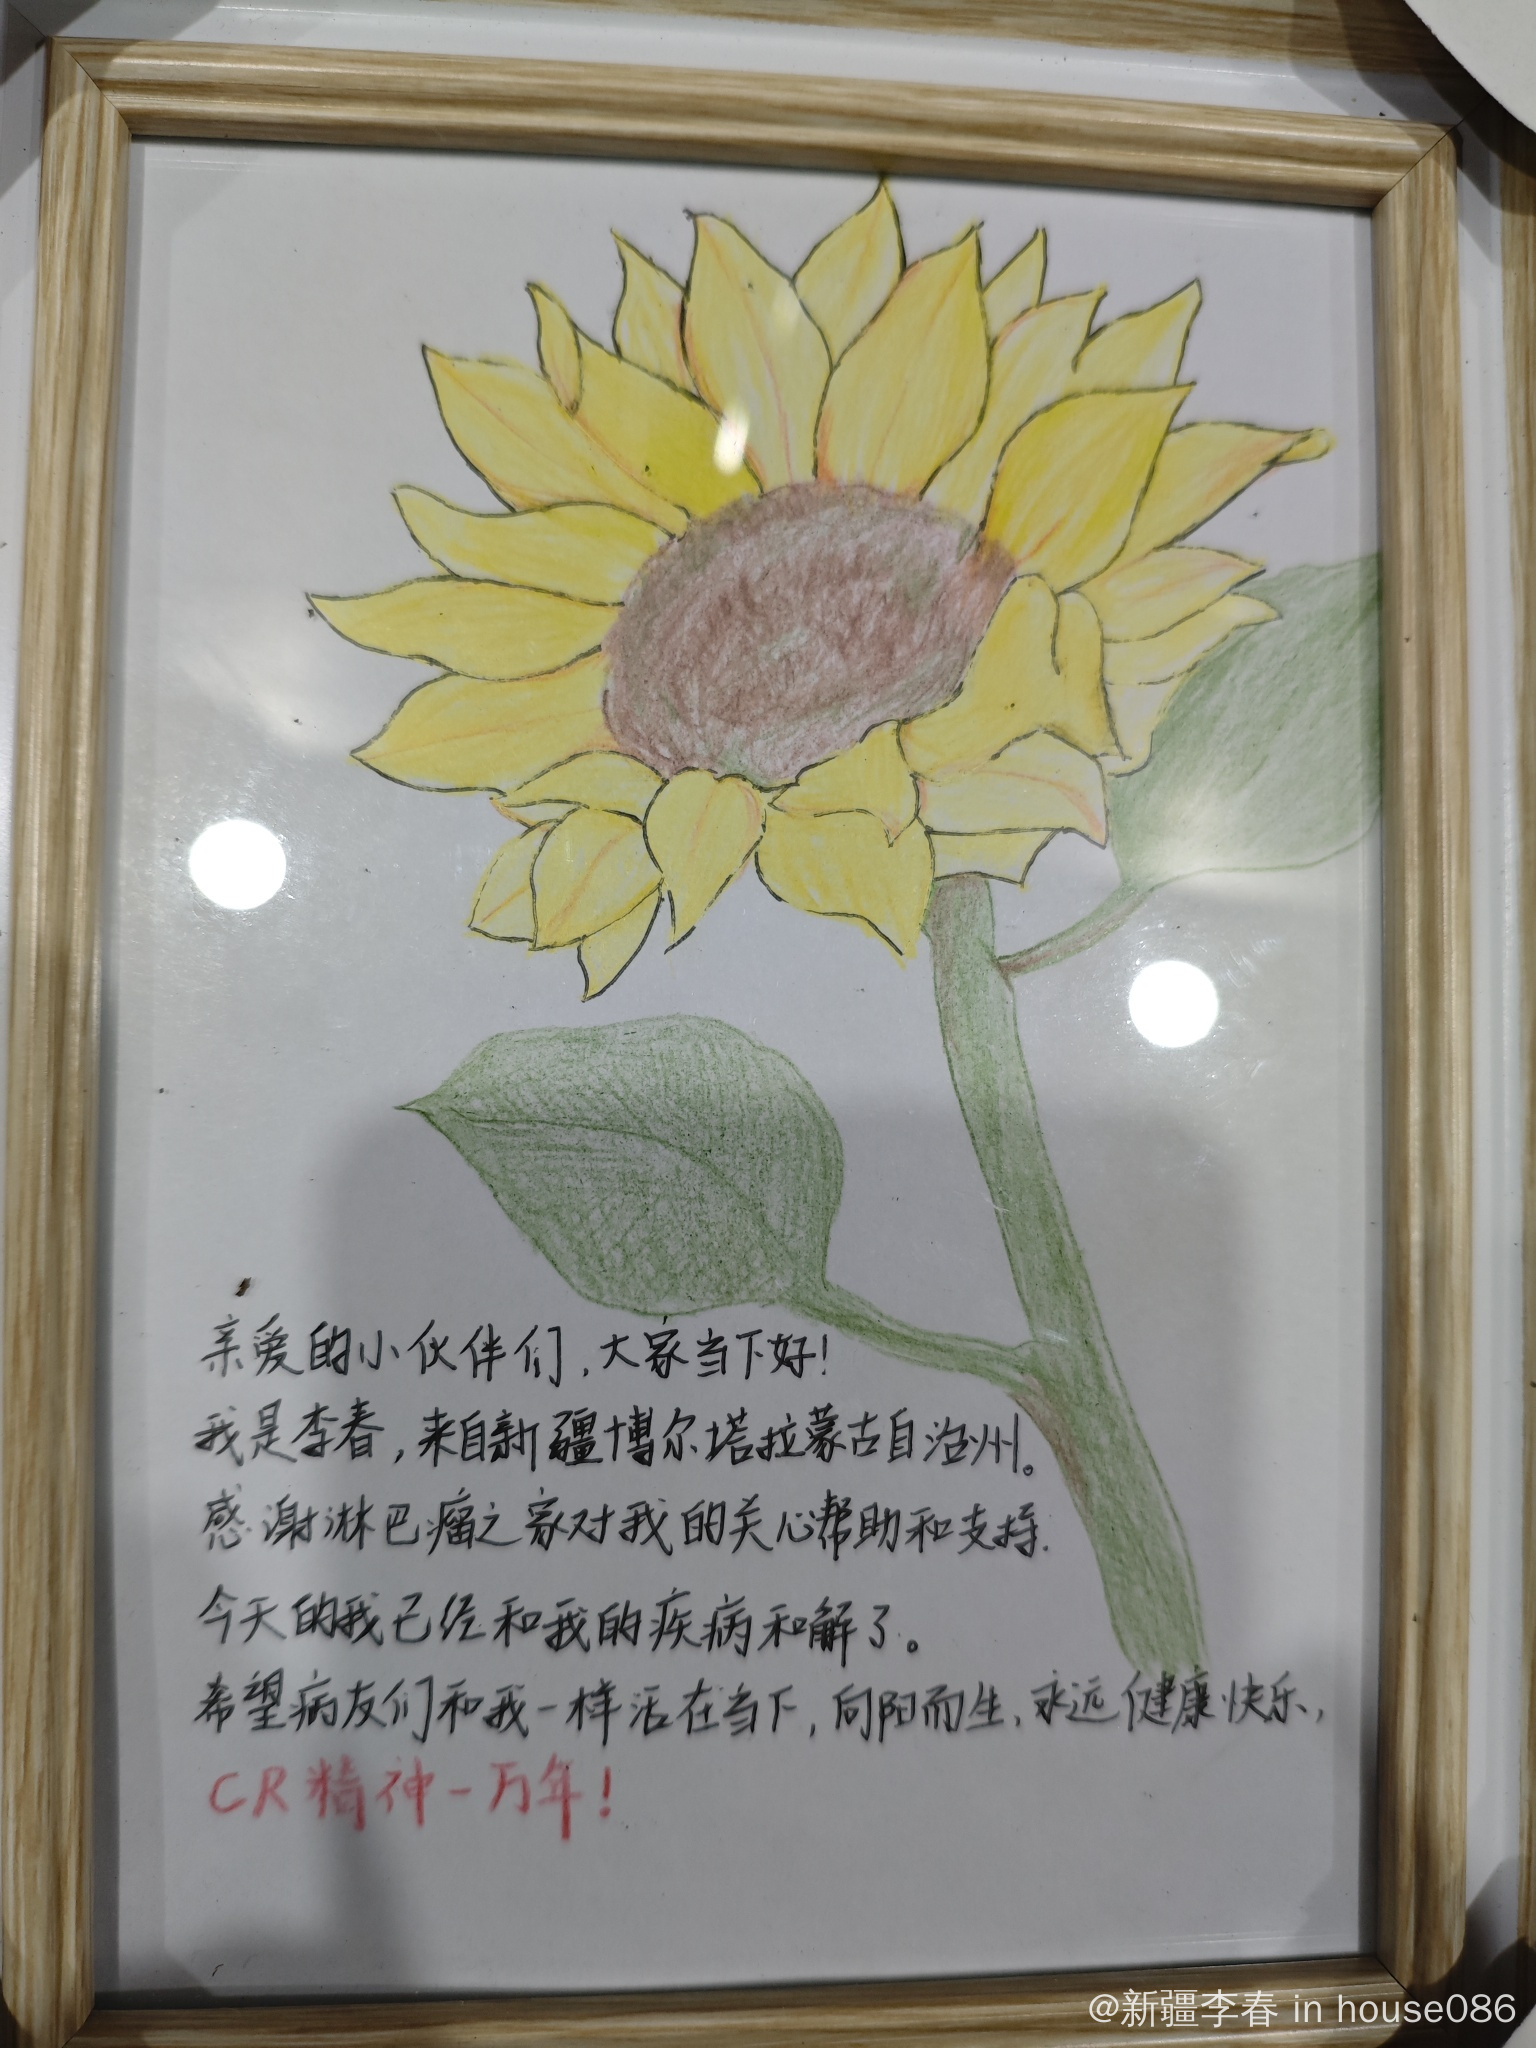 亲爱的小伙伴们，大家当下好！
我是李春，来自新疆博尔塔拉蒙古自治州。
感谢淋巴瘤之家对我的关心帮助和支持.
今天的我已经和我的疾病和解了。
希望病友们和我一样活在当下，向阳而生、永远健康快乐，
CR精神一万年！
@新疆李春 in house086